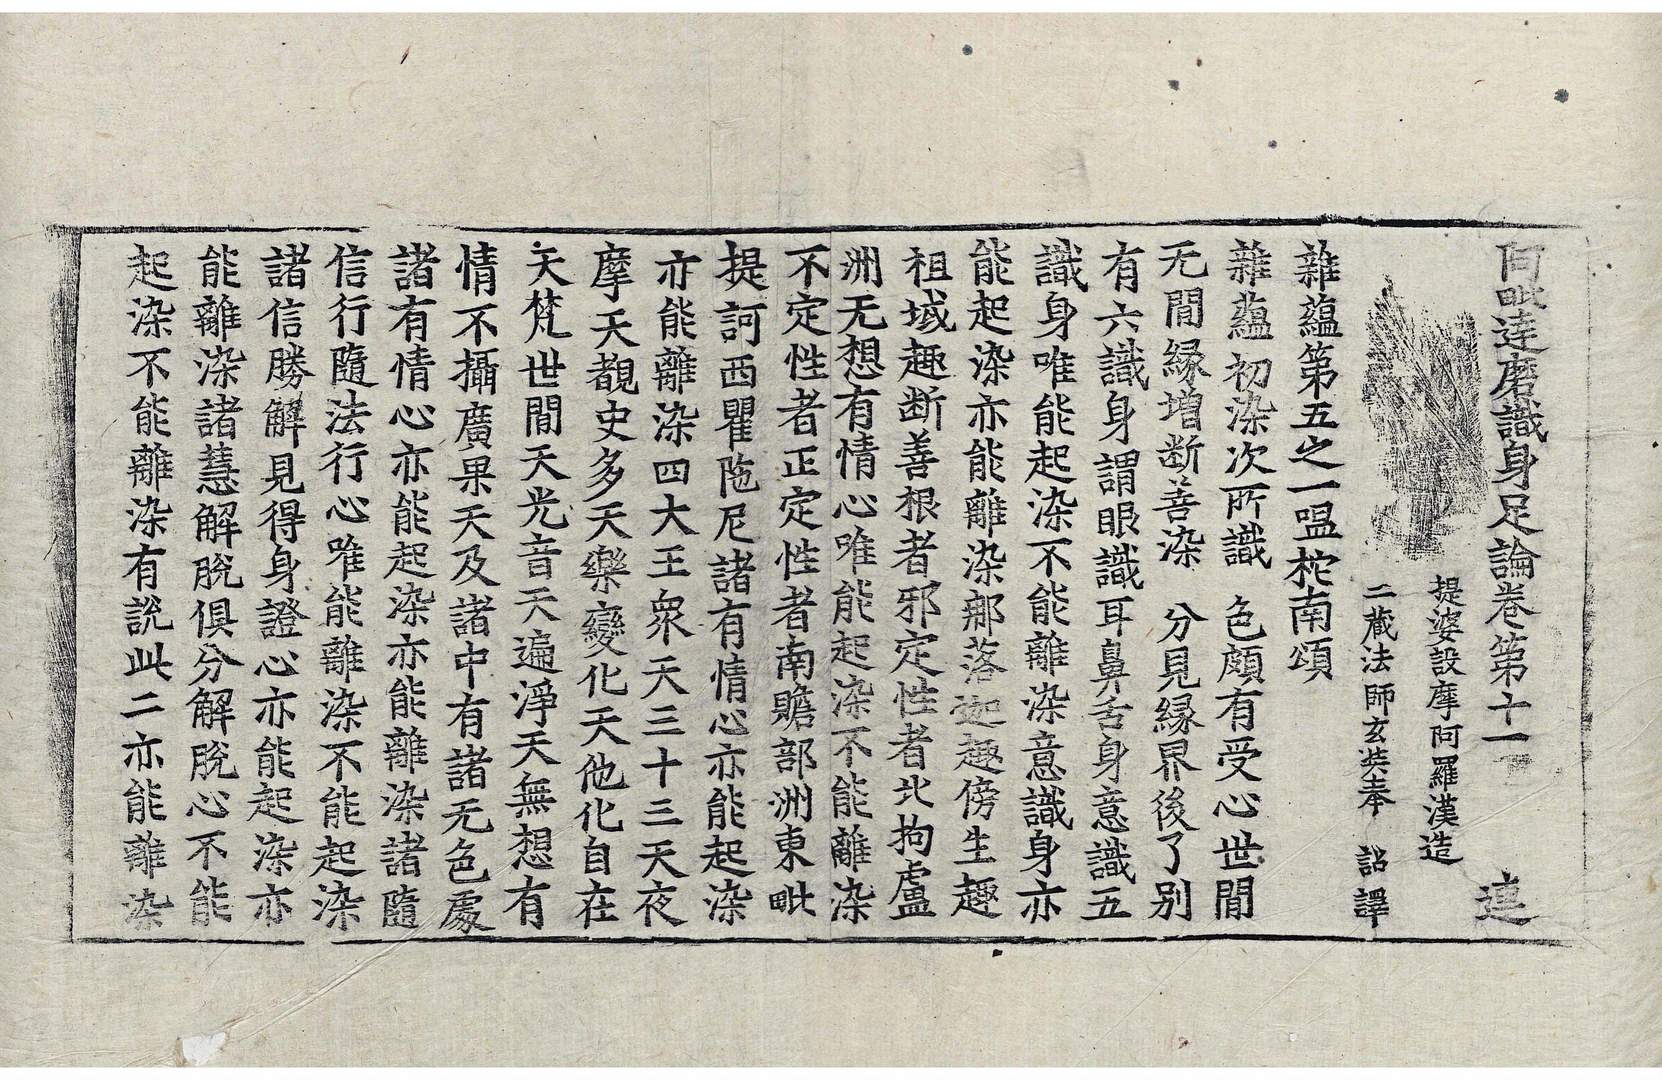 阿毗達磨識身足論卷第十一 達
提婆設摩阿羅漢造
三藏法師玄奘奉 詔譯
雜蘊第五之一嗢柁南頌
雜蘊初染次所識 色頗有受心世間
无間緣增断善染 分見緣界後了别
有六識身謂眼識耳鼻舌身意識五
識身唯能起染不能離染意識身亦
能起染亦能離染那落迦趣傍生趣
祖域趣断善根者邪定性者北拘盧
洲无想有情心唯能起染不能離染
不定性者正定性者南贍部洲東毗
提訶西瞿陁尼諸有情心亦能起染
亦能離染四大王衆天三十三天夜
摩天覩史多天樂變化天他化自在
天梵世間天光音天遍淨天無想有
情不攝廣果天及諸中有諸无色處
諸有情心亦能起染亦能離染諸隨
信行隨法行心唯能離染不能起染
諸信勝解見得身證心亦能起染亦
能離染諸慧解脫俱分解脫心不能
起染不能離染有說此二亦能離染